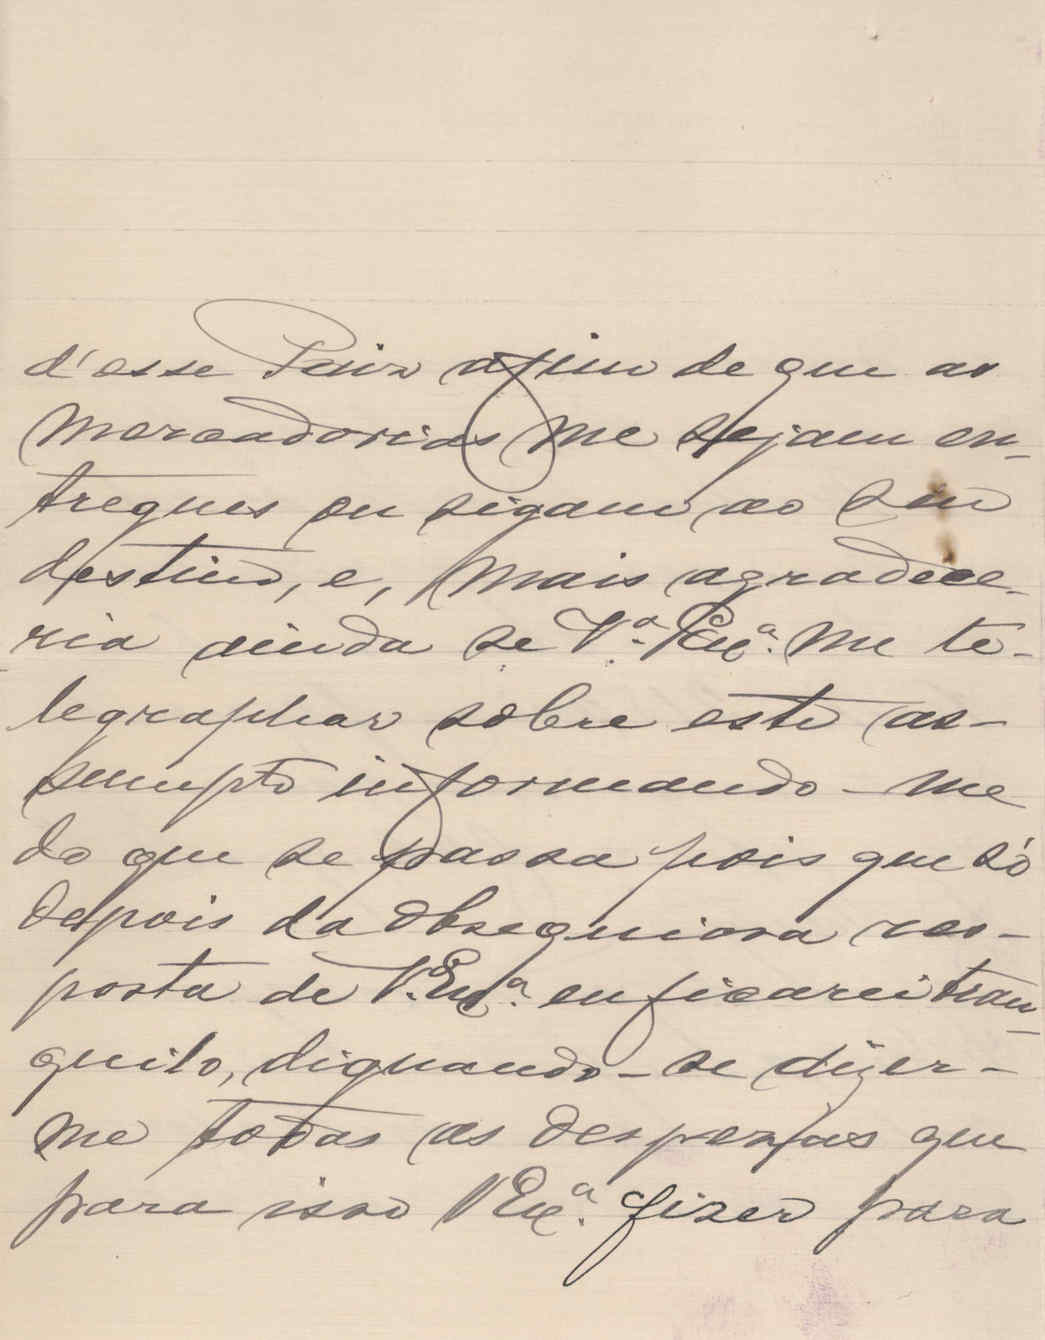 d'esse Paiz afim de que as
mercadorias me sejam en-
tregues ou sigam ao seu
destino, e, mais agradece-
ria ainda se V.ª Exª. me te-
legraphar sobre este as-
sumpto informando-me
do que se passa pois que só
depois da obsequiosa res-
posta de V. Exª. eu ficarei tran-
quilo, dignando-se dizer-
me todas as despezas que
para isso V Exª. fizer para